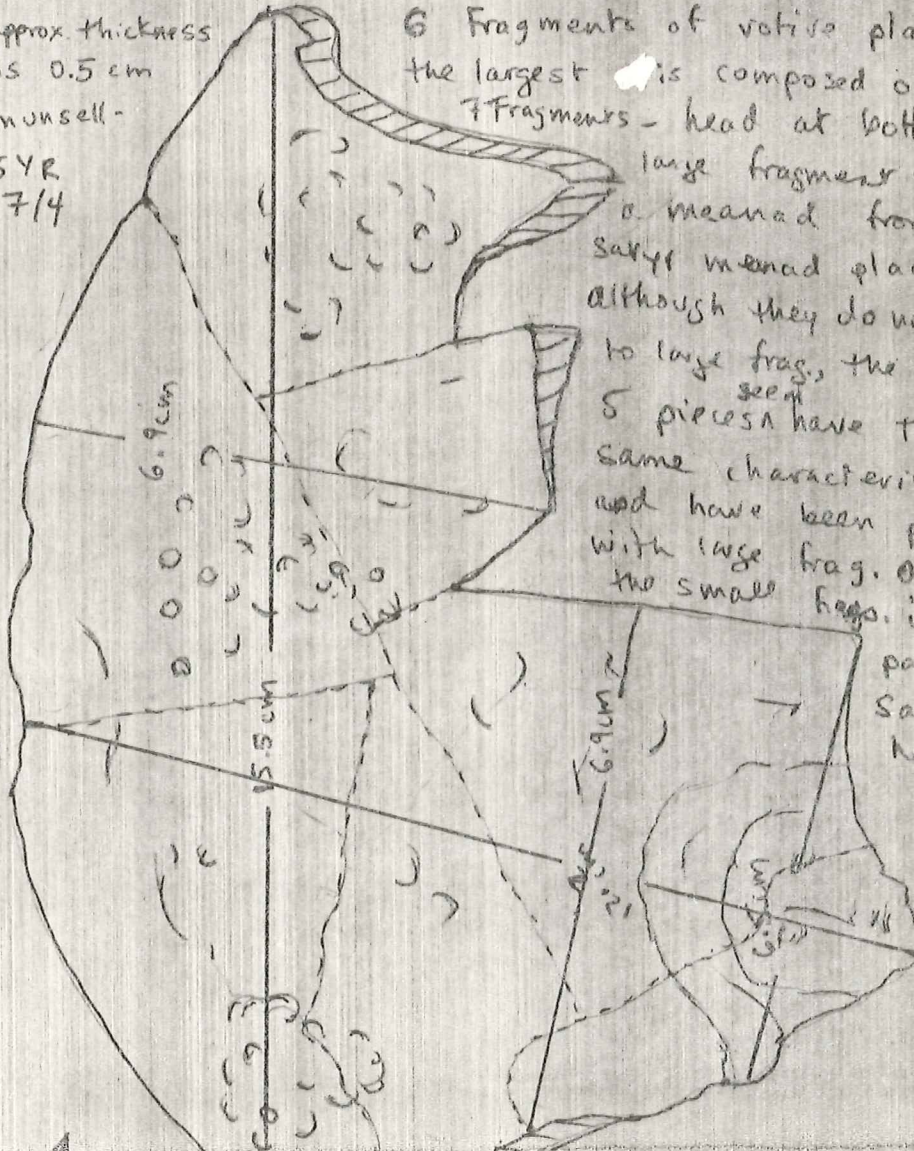 approx. thickness
is 0.5 cm
munsell-
5YR
7/4
6 Fragments of votive pla
the largest is composed o
7 Fragments - head at bott
large fragment
a meanad fro
satyr meanad pla
although they do no
to large frag., the
5 pieces seem have t
same characteri
and have been
with large frag. o
the small frags. i
pa
Sa
2
6.9cm
15.5cm
6.9cm